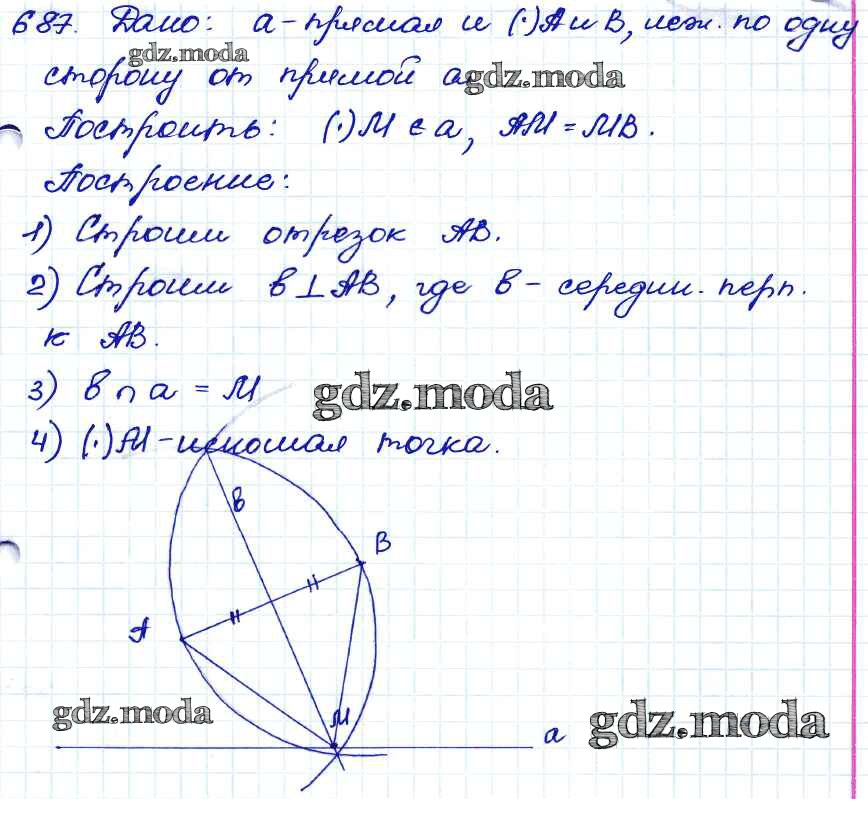 687. Дано: а - прямая и (·)A и B, леж. по одну
gdz.moda
сторону от прямой а
gdz.moda
Построить: (·)M ∈ a, AM = MB.
Построение:
1) Строим отрезок AB.
2) Строим в ⊥ AB, где в - середин. перп.
к AB.
3) в ∩ a = M
gdz.moda
4) (·)M - искомая точка.
в
B
A
gdz.moda
M
a
gdz.moda